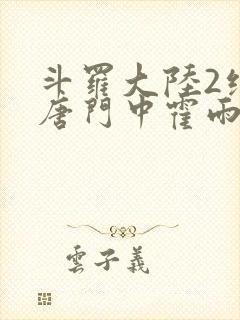 斗羅大陸2
唐門中霍雨
雲子義